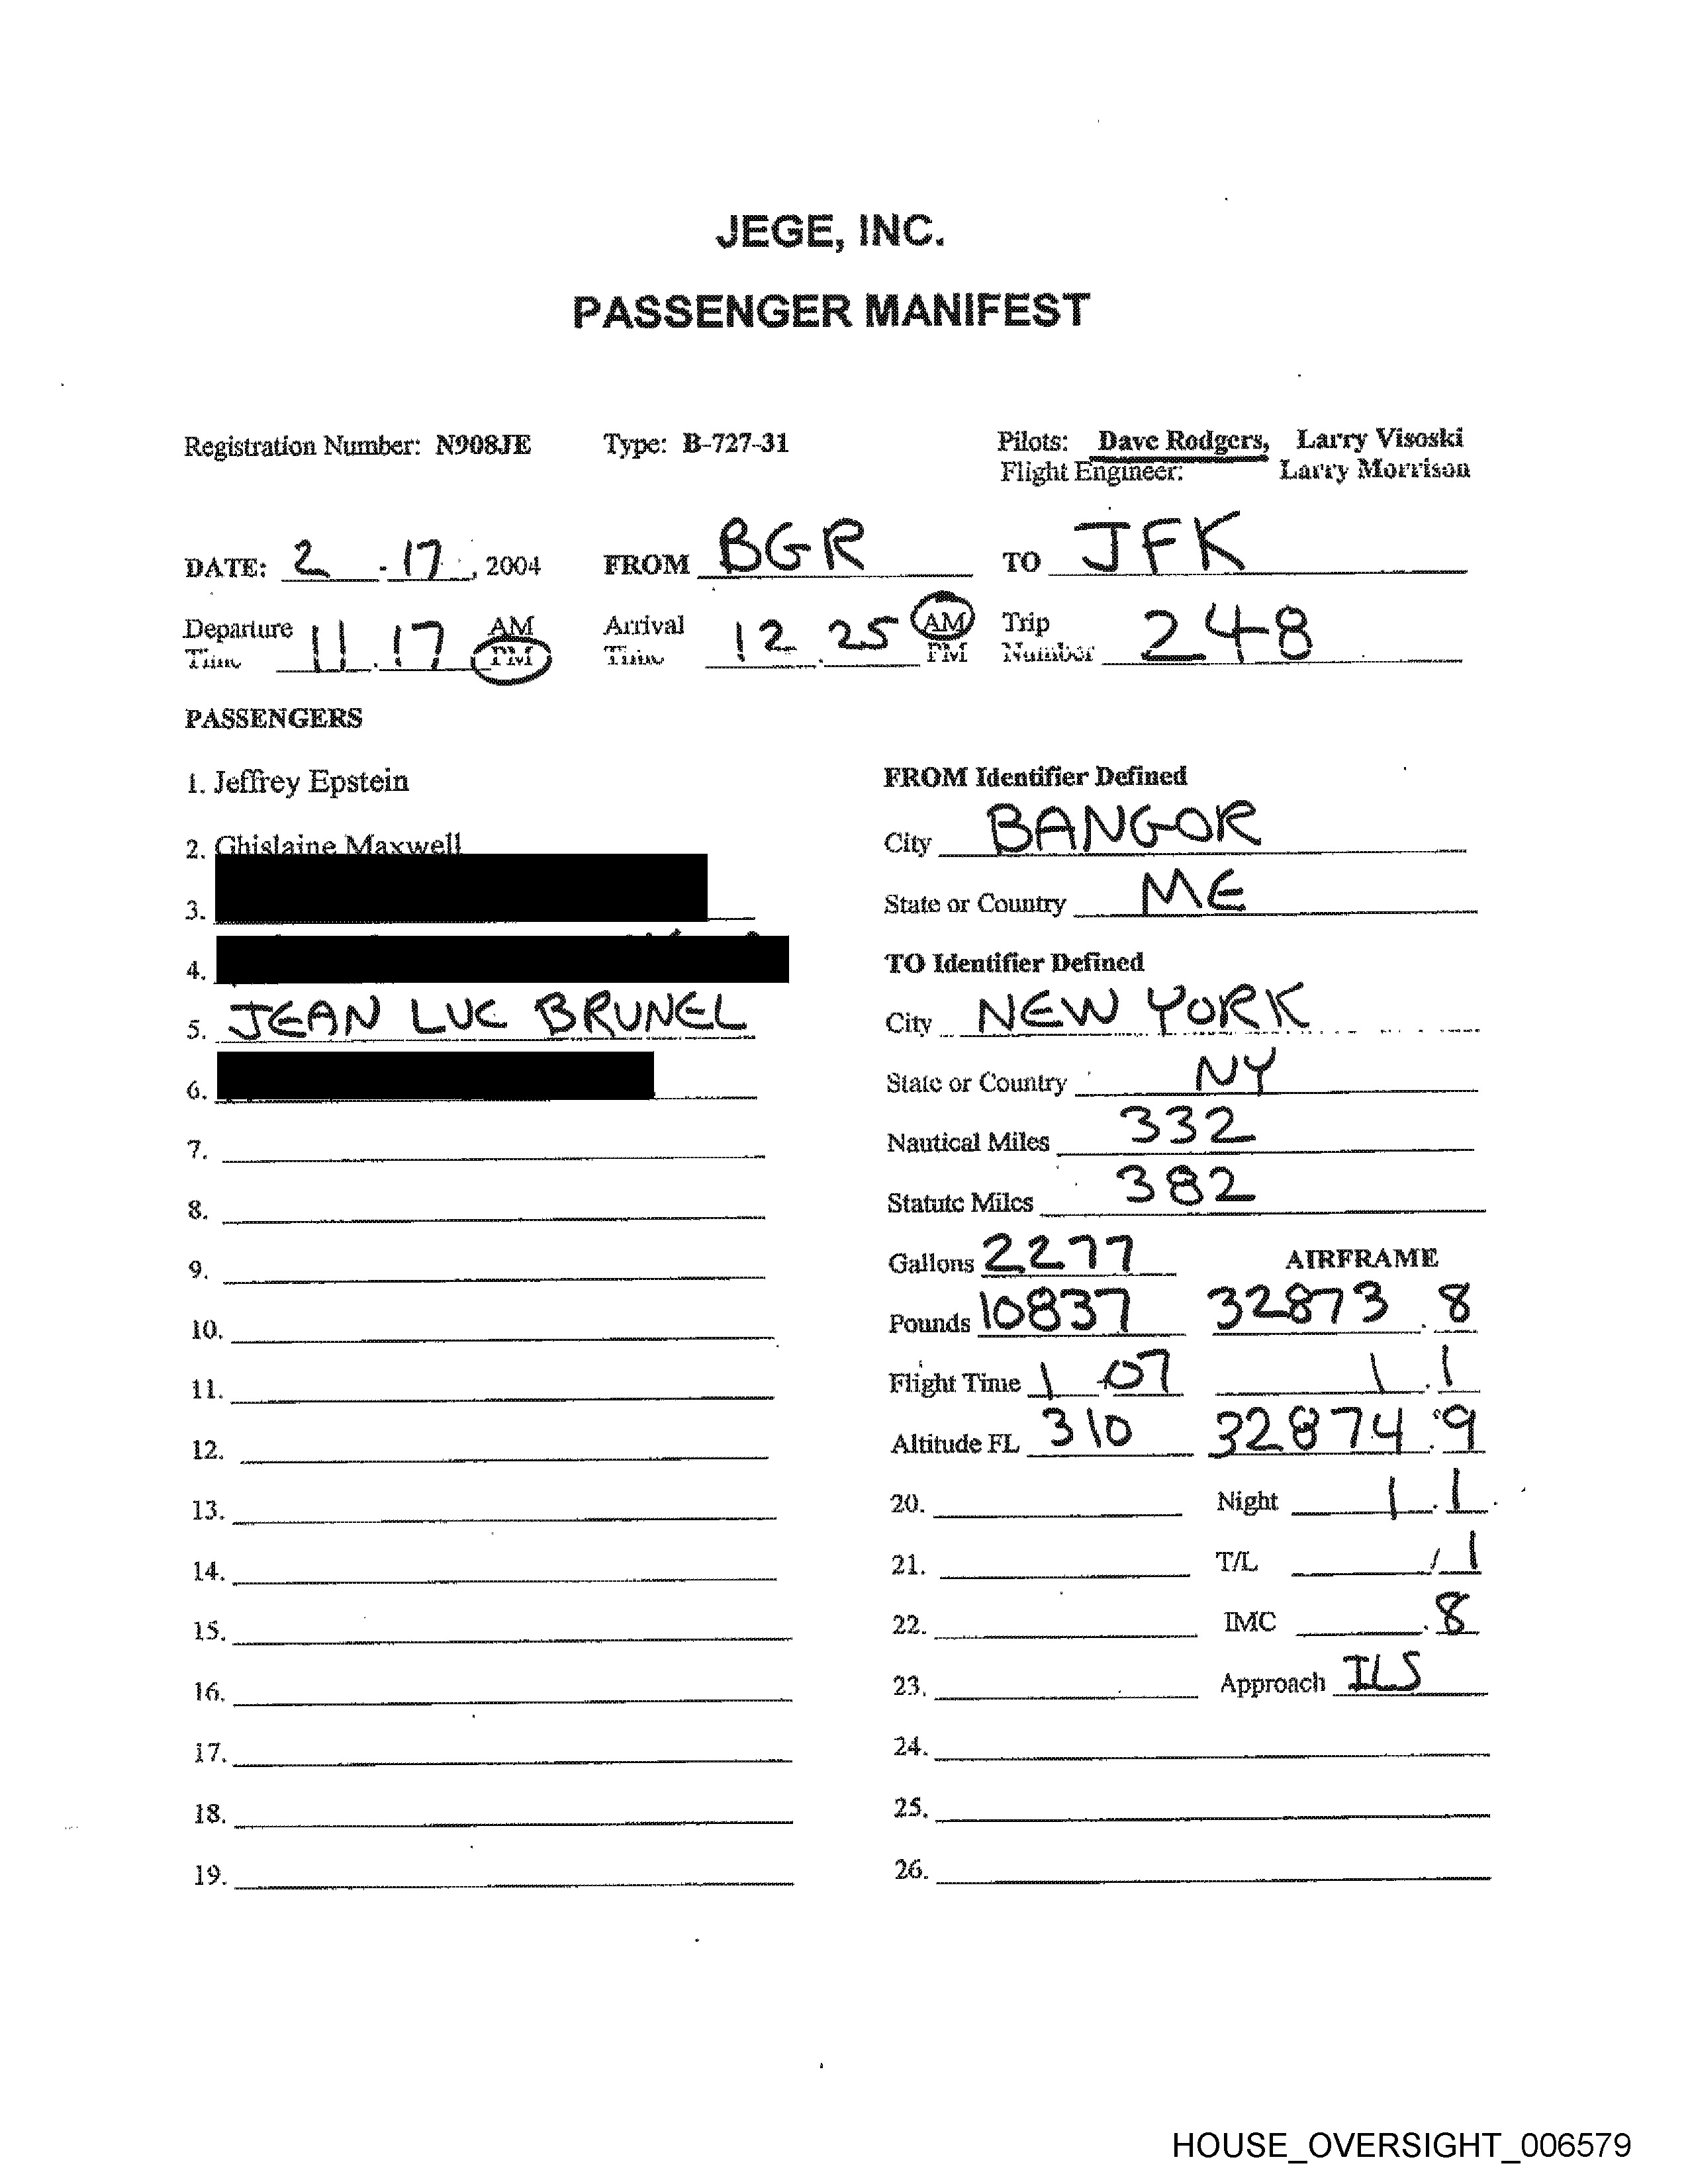 JEGE, INC.
PASSENGER MANIFEST
Registration Number: N908JE Type: B-727-31 Pilots: Dave Rodgers, Larry Visoski
Flight Engineer: Larry Morrison
DATE: 2 - 17, 2004 FROM BGR TO JFK
Departure Time 11.17 AM PM Arrival Time 12.25 AM PM Trip Number 248
PASSENGERS
1. Jeffrey Epstein
2. Ghislaine Maxwell
3.
4.
5. JEAN LUC BRUNEL
6.
7.
8.
9.
10.
11.
12.
13.
14.
15.
16.
17.
18.
19.
FROM Identifier Defined
City BANGOR
State or Country ME
TO Identifier Defined
City NEW YORK
State or Country NY
Nautical Miles 332
Statute Miles 382
Gallons 2277 AIRFRAME
Pounds 10837 32873.8
Flight Time 1 + 07 1.1
Altitude FL 310 32874.9
20. Night 1.1
21. T/L / 1
22. IMC .8
23. Approach ILS
24.
25.
26.
HOUSE_OVERSIGHT_006579